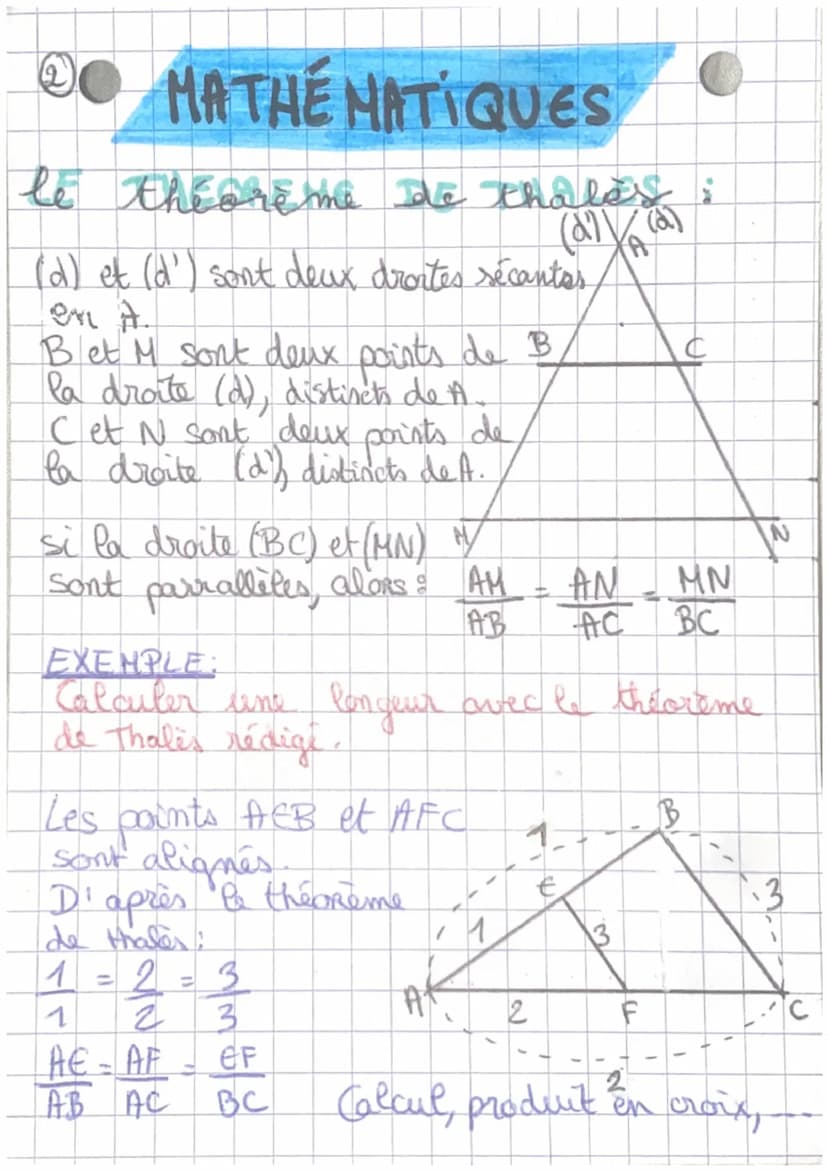 ②
MATHÉMATiQUES
lE théorème de thalès :
(d') (d)
A
(d) et (d') sont deux droites sécantes
en A.
B et M sont deux points de
la droite (d), distincts de A.
C et N sont deux points de
la droite (d'), distincts de A.
B C
M N
si la droite (BC) et (MN)
sont parrallèles, alors :
AM/AB = AN/AC = MN/BC
EXEMPLE:
Calculer une longeur avec le théorème
de Thalès rédigé.
Les points AEB et AFC
sont alignés.
D'après le théorème
de thalès :
1/1 = 2/2 = 3/3
AE/AB = AF/AC = EF/BC
B
1
E
3
1
3
A
2
F
C
2
Calcul, produit en croix, ...